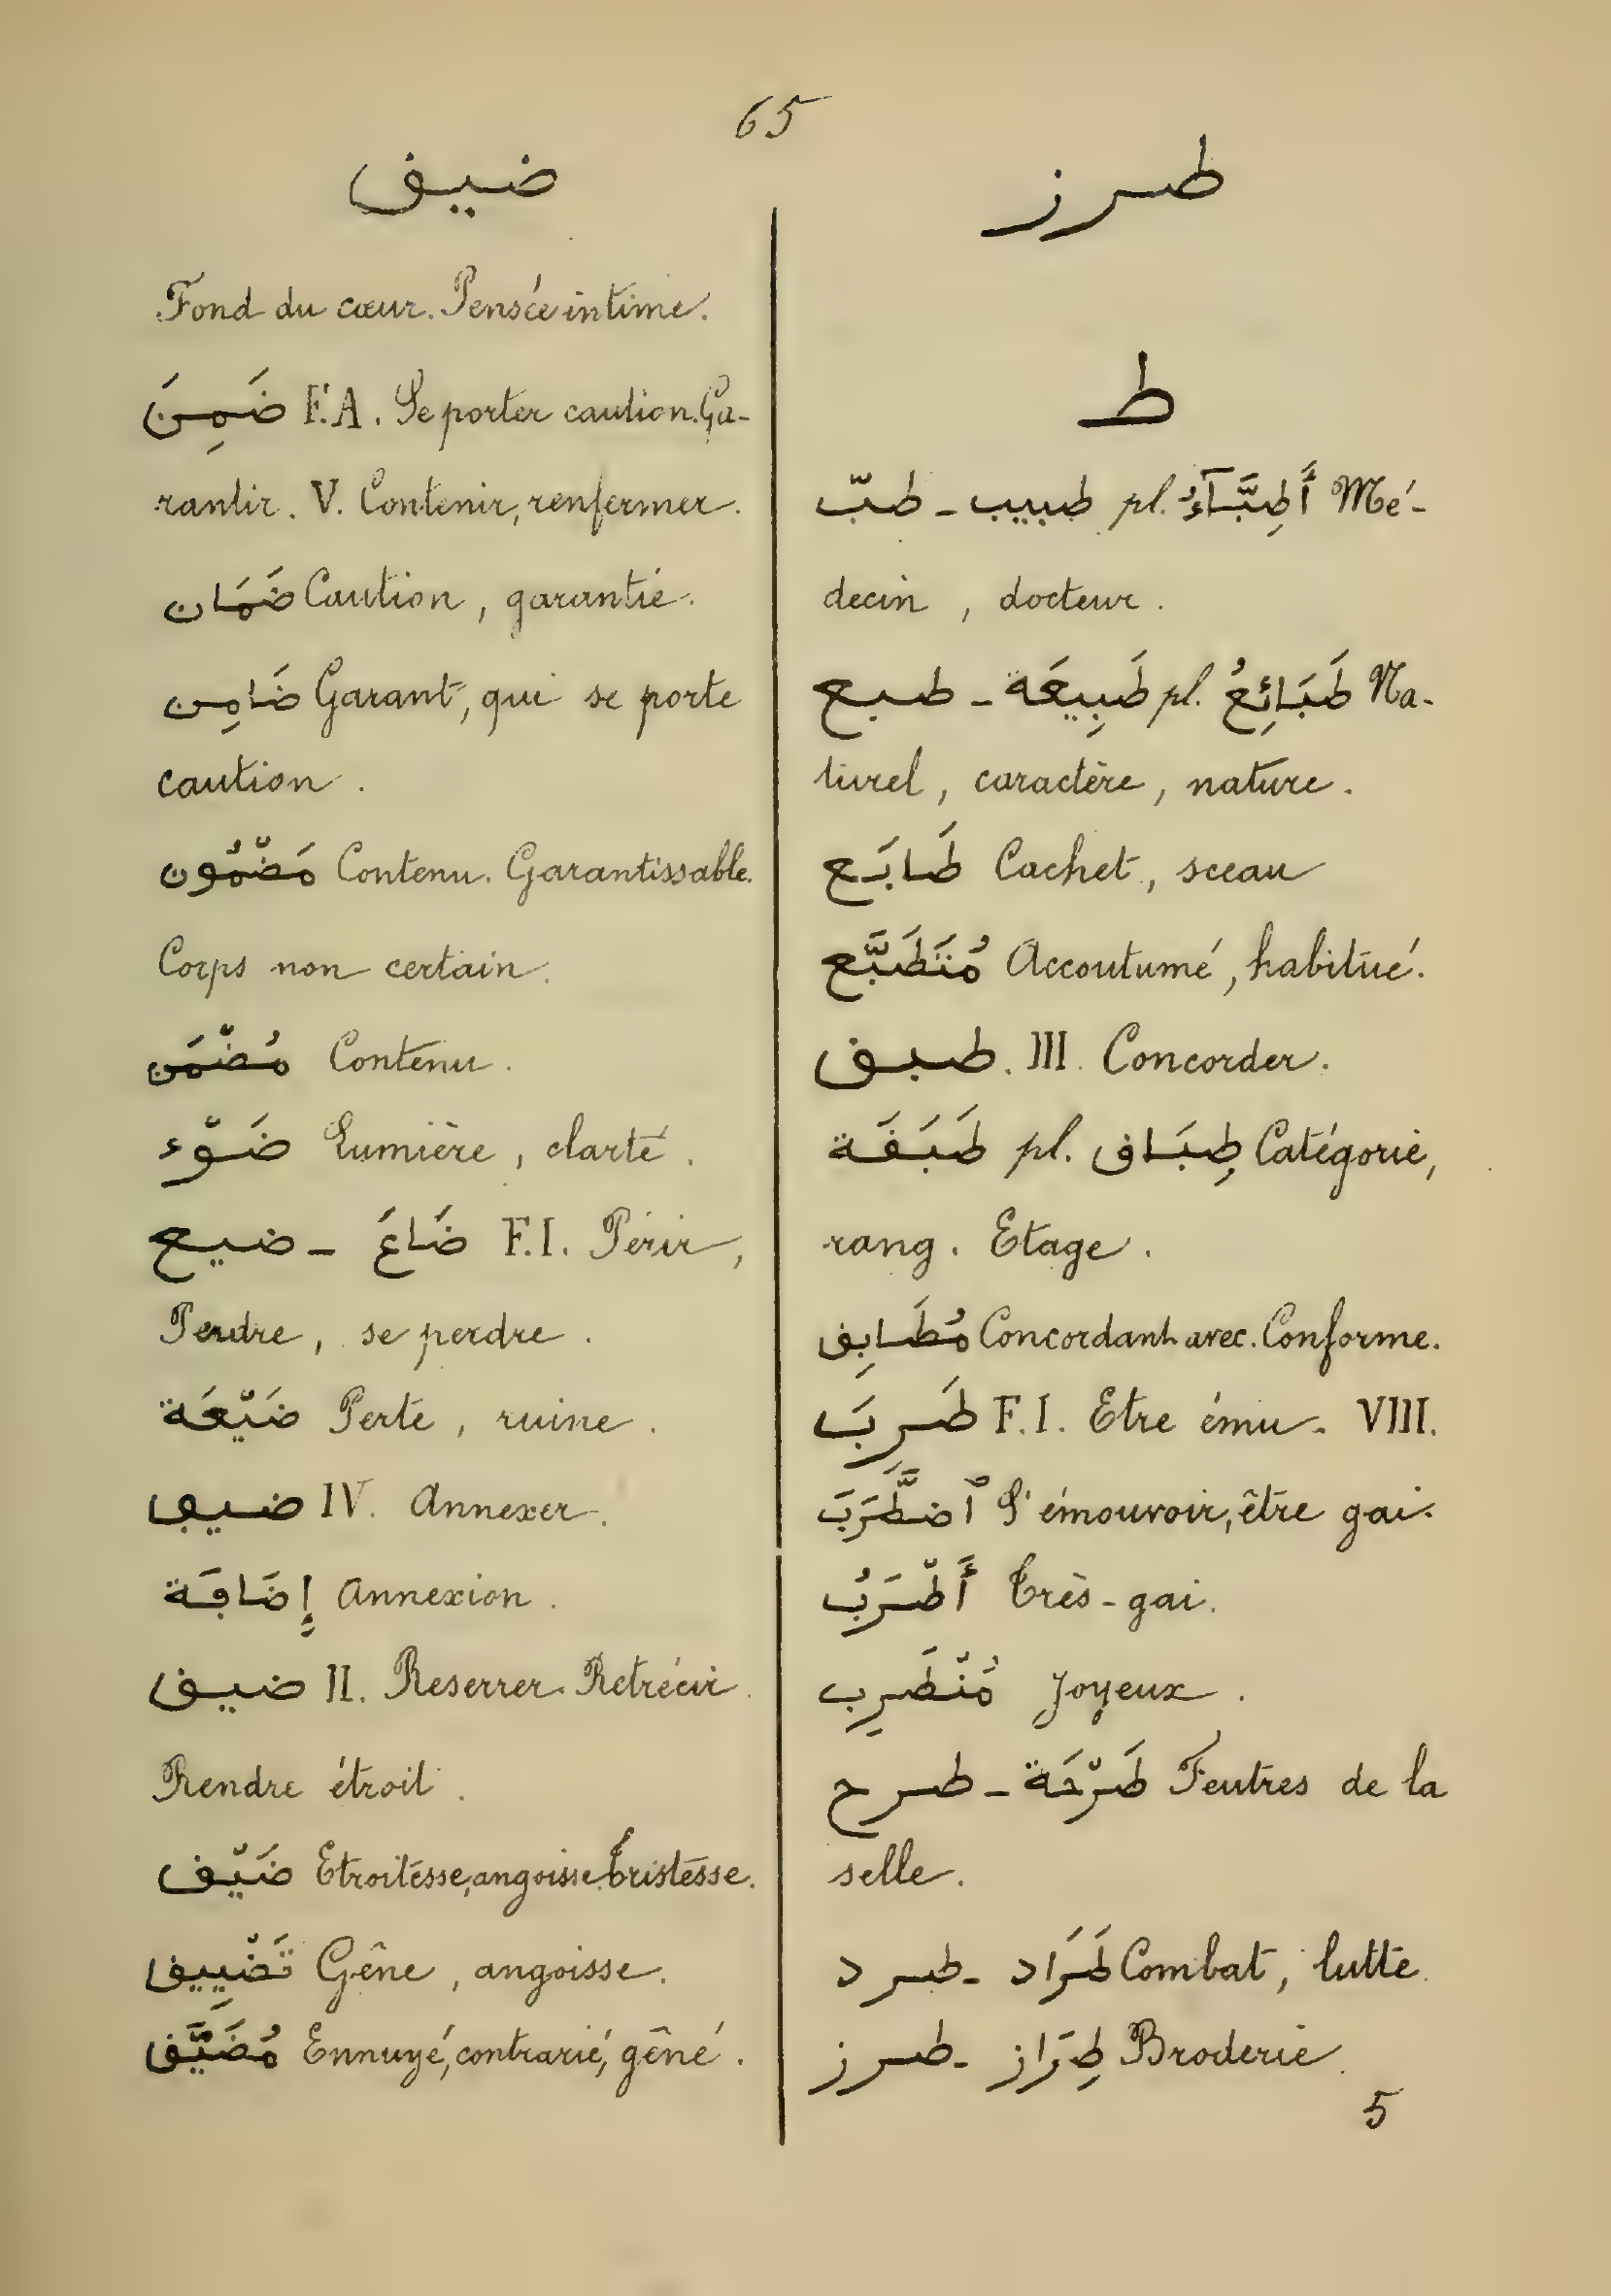 65
ضيق
Fond du cœur. Pensée intime.
ضَمِنَ F.A. Se porter caution. Ga-
rantir. V. Contenir, renfermer.
ضَمَان Caution, garantie.
ضَامِن Garant, qui se porte
caution.
مَضْمُون Contenu. Garantissable.
Corps non certain.
مُضْمَن Contenu.
ضَوْء Lumière, clarté.
ضيع - ضَاعَ F.I. Périr,
Perdre, se perdre.
ضَيْعَة Perte, ruine.
ضيف IV. Annexer.
إِضَافَة Annexion.
ضيق II. Reserrer. Retrécir.
Rendre étroit.
ضَيْق Etroitesse, angoisse. Tristesse.
تَضْيِيق Gêne, angoisse.
مُضَيَّق Ennuyé, contrarié, gêné.
طرز
ط
طبّ - طبيب pl. أَطِبَّآءُ Mé-
decin, docteur.
طبع - طَبِيعَة pl. طَبَائِعُ Na-
turel, caractère, nature.
طَابَع Cachet, sceau
مُتَطَبَّع Accoutumé, habitué.
طبق. III. Concorder.
طَبَقَة pl. طِبَاق Catégorie,
rang. Etage.
مُطَابِق Concordant avec. Conforme.
طَرِبَ F.I. Etre ému. VIII.
ٱضطَّرَبَ S'émouvoir, être gai.
أَطْرَبُ Très-gai.
مُنْطَرِب Joyeux.
طرح - طَرْحَة Feutres de la
selle.
طرد - طَرَاد Combat, lutte.
طرز - طِرَاز Broderie.
5